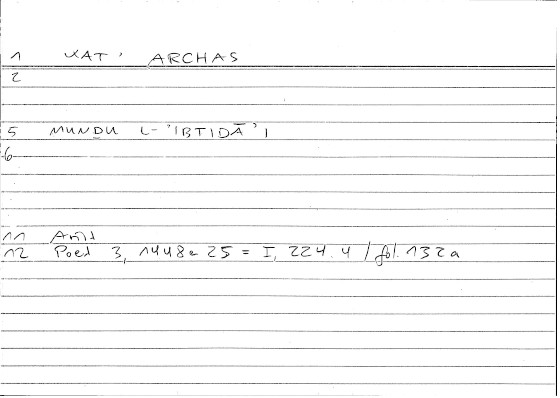 1 KAT' ARCHAS
2
5 MUNDU L-'IBTIDĀ'I
6
11 Arist
12 Poet 3, 1448a 25 = I, 224.4 / fol. 132a